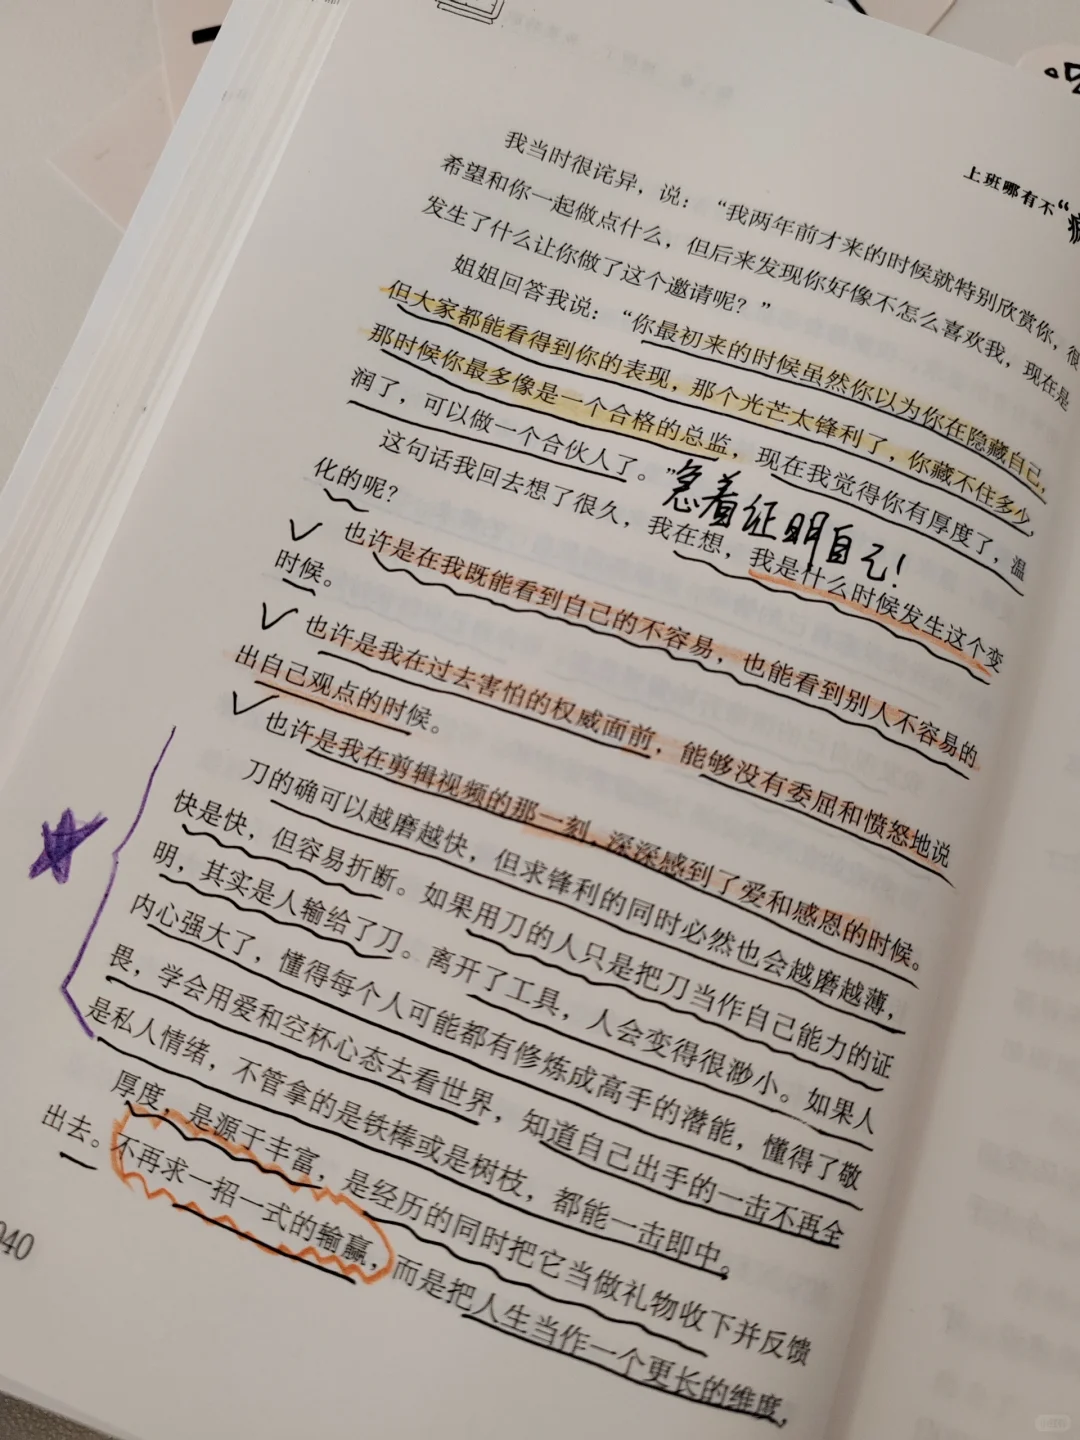 上班哪有不“
我当时很诧异，说：“我两年前才来的时候就特别欣赏你，很
希望和你一起做点什么，但后来发现你好像不怎么喜欢我，现在是
发生了什么让你做了这个邀请呢？”
姐姐回答我说：“你最初来的时候虽然你以为你在隐藏自己，
但大家都能看得到你的表现，那个光芒太锋利了，你藏不住多少，
那时候你最多像是一个合格的总监，现在我觉得你有厚度了，温
润了，可以做一个合伙人了。”
急着证明自己！
这句话我回去想了很久，我在想，我是什么时候发生这个变
化的呢？
也许是在我既能看到自己的不容易，也能看到别人不容易的
时候。
也许是我在过去害怕的权威面前，能够没有委屈和愤怒地说
出自己观点的时候。
也许是我在剪辑视频的那一刻，深深感到了爱和感恩的时候。
刀的确可以越磨越快，但求锋利的同时必然也会越磨越薄，
快是快，但容易折断。如果用刀的人只是把刀当作自己能力的证
明，其实是人输给了刀。离开了工具，人会变得很渺小。如果人
内心强大了，懂得每个人可能都有修炼成高手的潜能，懂得了敬
畏，学会用爱和空杯心态去看世界，知道自己出手的一击不再全
是私人情绪，不管拿的是铁棒或是树枝，都能一击即中。
厚度，是源于丰富，是经历的同时把它当做礼物收下并反馈
出去。不再求一招一式的输赢，而是把人生当作一个更长的维度，
040